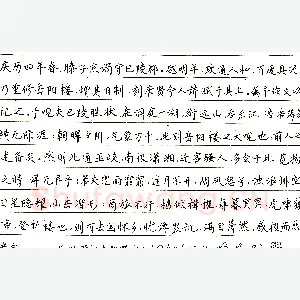 庆历四年春，滕子京谪守巴陵郡。越明年，政通人和，百废具兴
乃重修岳阳楼，增其旧制，刻唐贤今人诗赋于其上，属予作文以
记之。予观夫巴陵胜状，在洞庭一湖。衔远山，吞长江，浩浩汤汤
横无际涯；朝晖夕阴，气象万千，此则岳阳楼之大观也，前人之
述备矣。然则北通巫峡，南极潇湘，迁客骚人，多会于此，览物
之情，得无异乎？若夫淫雨霏霏，连月不开，阴风怒号，浊浪排空
日星隐曜，山岳潜形；商旅不行，樯倾楫摧；薄暮冥冥，虎啸猿
登斯楼也，则有去国怀乡，忧谗畏讥，满目萧然，感极而